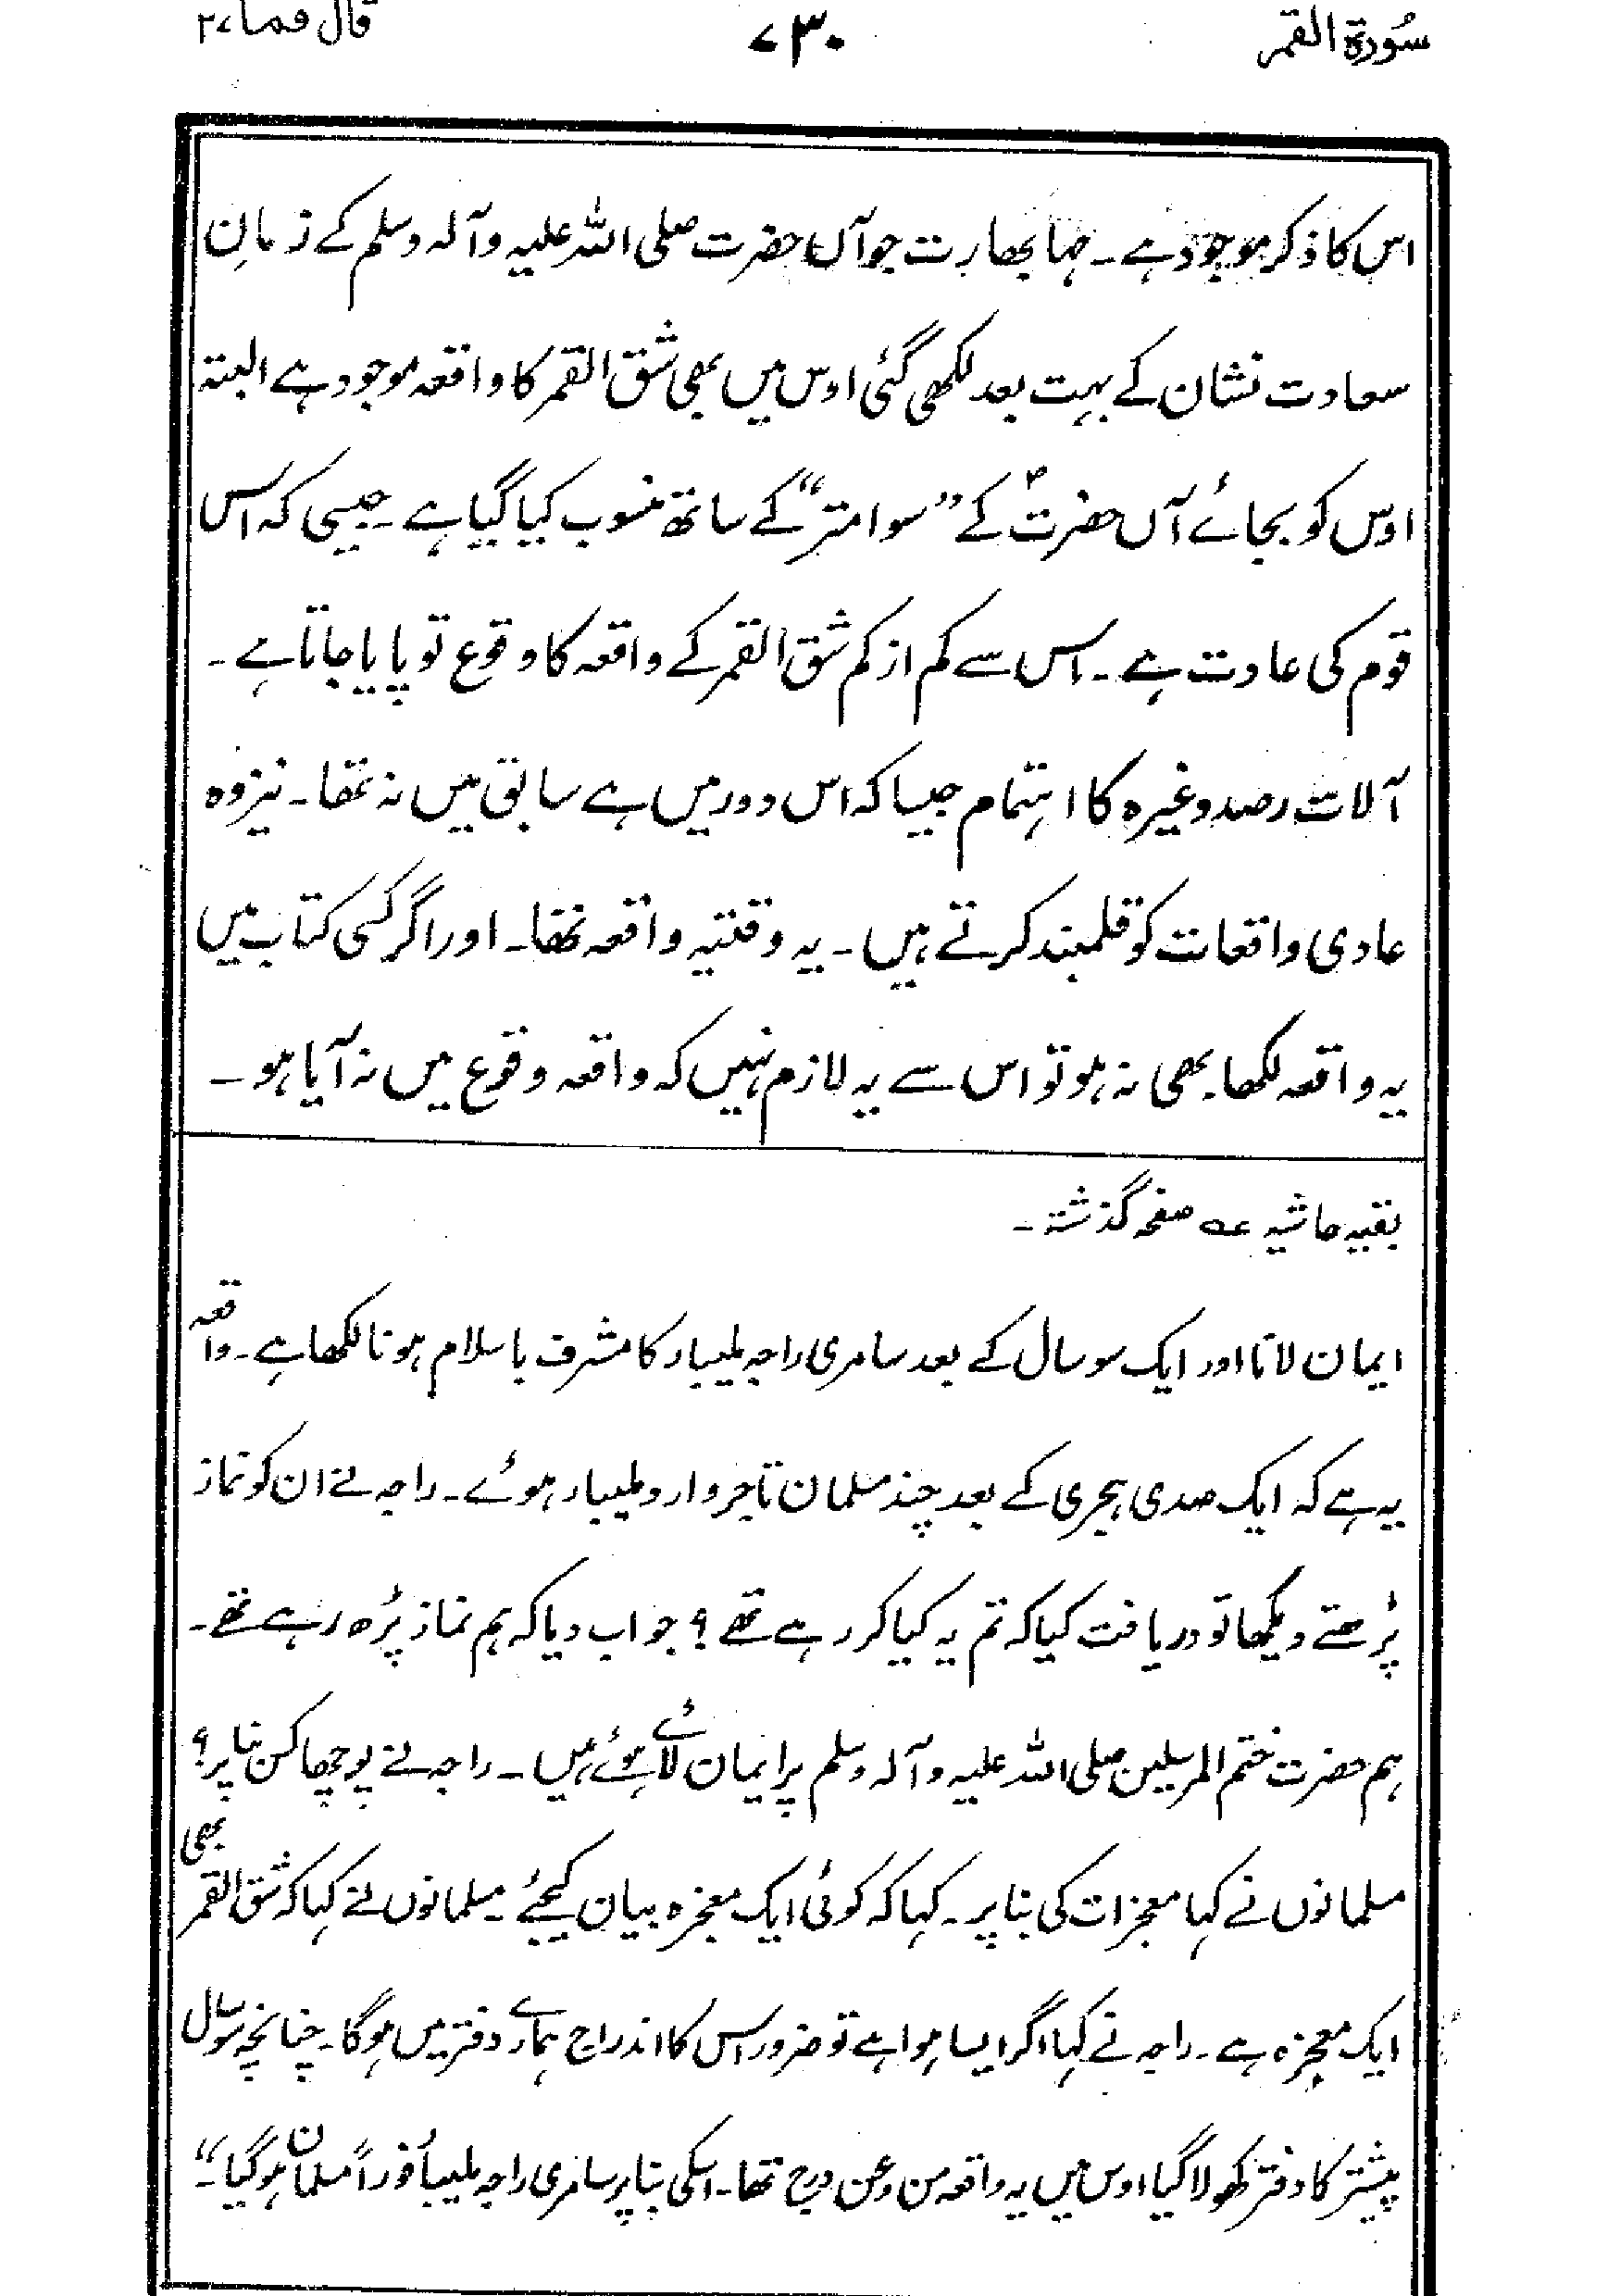 سُورة القمر ۷۳۰ قال فما ۲۷
اس کا ذکر موجود ہے۔ مہا بھارت جو آں حضرت صلی اللہ علیہ وآلہ وسلم کے زمانِ
سعادت نشان کے بہت بعد لکھی گئی اوس میں بھی شق القمر کا واقعہ موجود ہے البتہ
اوس کو بجائے آں حضرتؐ کے ”سوامتر“ کے ساتھ منسوب کیا گیا ہے۔ جیسی کہ اس
قوم کی عادت ہے۔ اس سے کم از کم شق القمر کے واقعہ کا وقوع تو پایا جاتا ہے۔
آلات رصد وغیرہ کا اہتمام جیسا کہ اس دور میں ہے سابق میں نہ تھا۔ نیز وہ
عادی واقعات کو قلمبند کرتے ہیں۔ یہ وقتیہ واقعہ تھا۔ اور اگر کسی کتاب میں
یہ واقعہ لکھا بھی نہ ہو تو اس سے یہ لازم نہیں کہ واقعہ وقوع میں نہ آیا ہو۔
بقیہ حاشیہ عہ صفحہ گذشتہ۔
ایمان لانا اور ایک سو سال کے بعد سامری راجہ ملیبار کا مشرف باسلام ہونا لکھا ہے۔ واقعہ
یہ ہے کہ ایک صدی ہجری کے بعد چند مسلمان تاجر وارد ملیبار ہوئے۔ راجہ نے ان کو نماز
پڑھتے دیکھا تو دریافت کیا کہ تم یہ کیا کر رہے تھے؟ جواب دیا کہ ہم نماز پڑھ رہے تھے۔
ہم حضرت ختم المرسلین صلی اللہ علیہ وآلہ وسلم پر ایمان لائے ہوئے ہیں۔ راجہ نے پوچھا کس بنا پر؟
مسلمانوں نے کہا معجزات کی بنا پر۔ کہا کہ کوئی ایک معجزہ بیان کیجئے۔ مسلمانوں نے کہا کہ شق القمر بھی
ایک معجزہ ہے۔ راجہ نے کہا اگر ایسا ہوا ہے تو ضرور اس کا اندراج ہمارے دفتر میں ہوگا۔ چنانچہ سو سال
پیشتر کا دفتر کھولا گیا اوس میں یہ واقعہ من و عن درج تھا۔ اسکی بنا پر سامری راجہ ملیبار فوراً مسلمان ہوگیا۔“